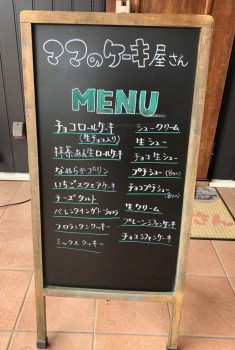 ママのケーキ屋さん
MENU
チョコロールケーキ
(生チョコ入り)
抹茶あん生ロールケーキ
なめらかプリン
いちごスクエアケーキ
チーズタルト
バレンタインガトーショコラ
フロランタンクッキー
ミックスクッキー
シュークリーム
生シュー
チョコ生シュー
プチシュー(8コ入)
チョコプチシュー
(8コ入)
生クリーム
プレーンシフォンケーキ
チョコシフォンケーキ
さん